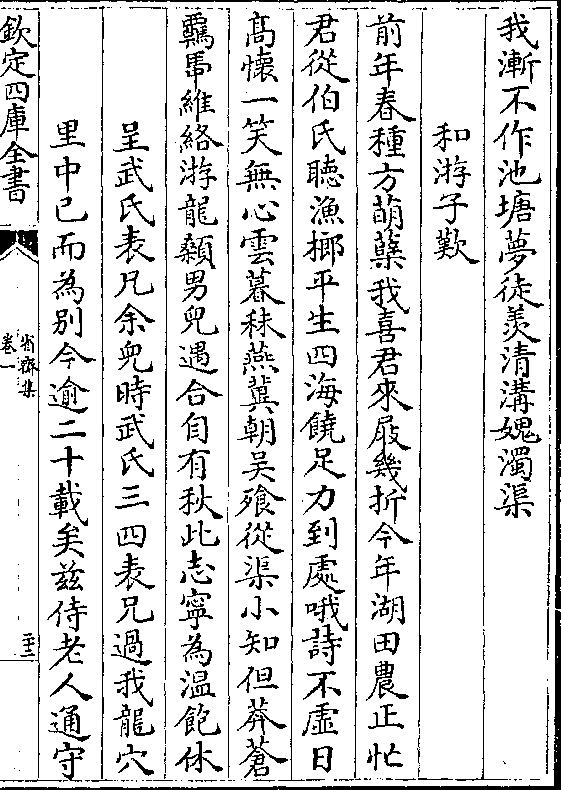 我漸不作池塘夢徒羨清溝媿濁渠
和游子歎
前年春種方萌蘖我喜君來屐幾折今年湖田農正忙
君從伯氏聽漁榔平生四海饒足力到處哦詩不虛日
髙懷一笑無心雲暮秣燕冀朝吴飱從渠小知但莽蒼
羈馽維絡游龍顙男兒遇合自有秋此志寧為温飽休
呈武氏表兄余兒時武氏三四表兄過我龍穴
里中已而為别今逾二十載矣兹侍老人通守
欽定四庫全書
省齋集
卷一
二十二